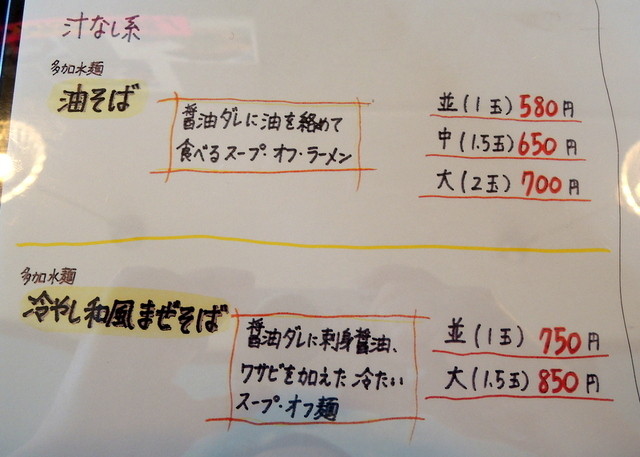 汁なし系
多加水麺
油そば
醤油ダレに油を絡めて
食べるスープ・オフ・ラーメン
並(1玉)580円
中(1.5玉)650円
大(2玉)700円
多加水麺
冷やし和風まぜそば
醤油ダレに刺身醤油、
ワサビを加えた冷たい
スープ・オフ麺
並(1玉)750円
大(1.5玉)850円